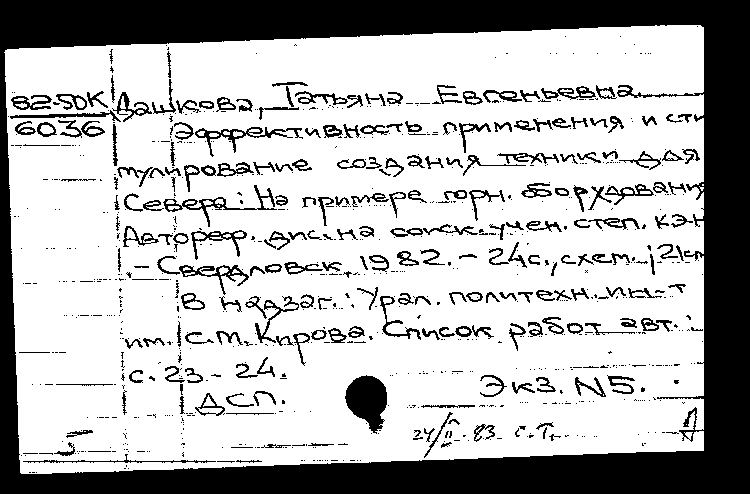 82-5DK Дашкова, Татьяна Евгеньевна
6036 Эффективность применения и сти
мулирование создания техники для
Севера : На примере горн. оборудования
Автореф. дис. на соиск. учен. степ. к.э.н
. - Свердловск, 1982. - 24с., схем. ; 21см
В надзаг. : Урал. политехн. ин-т
им. С.М. Кирова. Список работ авт. :
с. 23 - 24.
ДСП. Экз. N5.
5 24/II-83 с.Т.